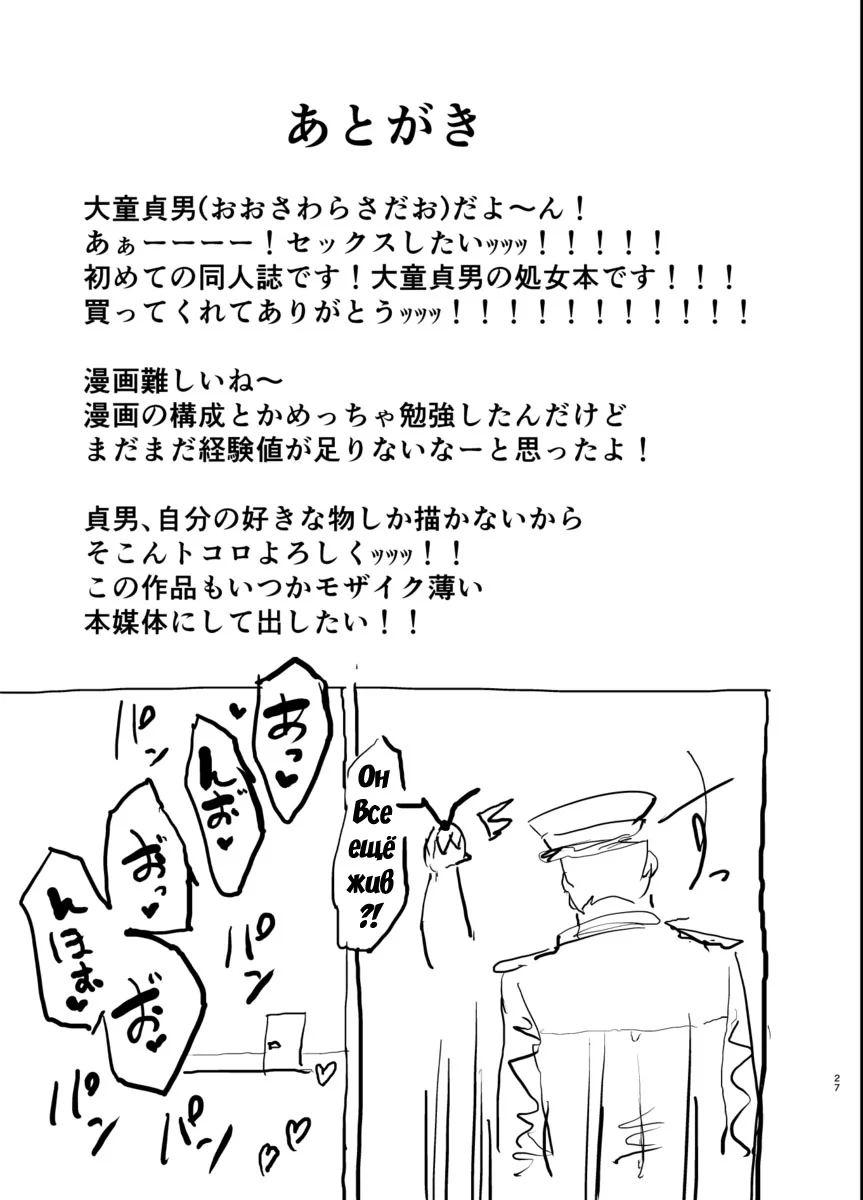 あとがき
大童貞男(おおさわらさだお)だよ～ん！
あぁーーーー！セックスしたいｯｯｯ！！！！！
初めての同人誌です！大童貞男の処女本です！！！
買ってくれてありがとうｯｯｯ！！！！！！！！！！！
漫画難しいね～
漫画の構成とかめっちゃ勉強したんだけど
まだまだ経験値が足りないなーと思ったよ！
貞男、自分の好きな物しか描かないから
そこんトコロよろしくｯｯｯ！！
この作品もいつかモザイク薄い
本媒体にして出したい！！
すっ
Он
Все
ещё
жив
?!
あっ♥
んお゛♥
お゛っ♥
んほお♥
お゛♥
パン
パン
パン
パン
27